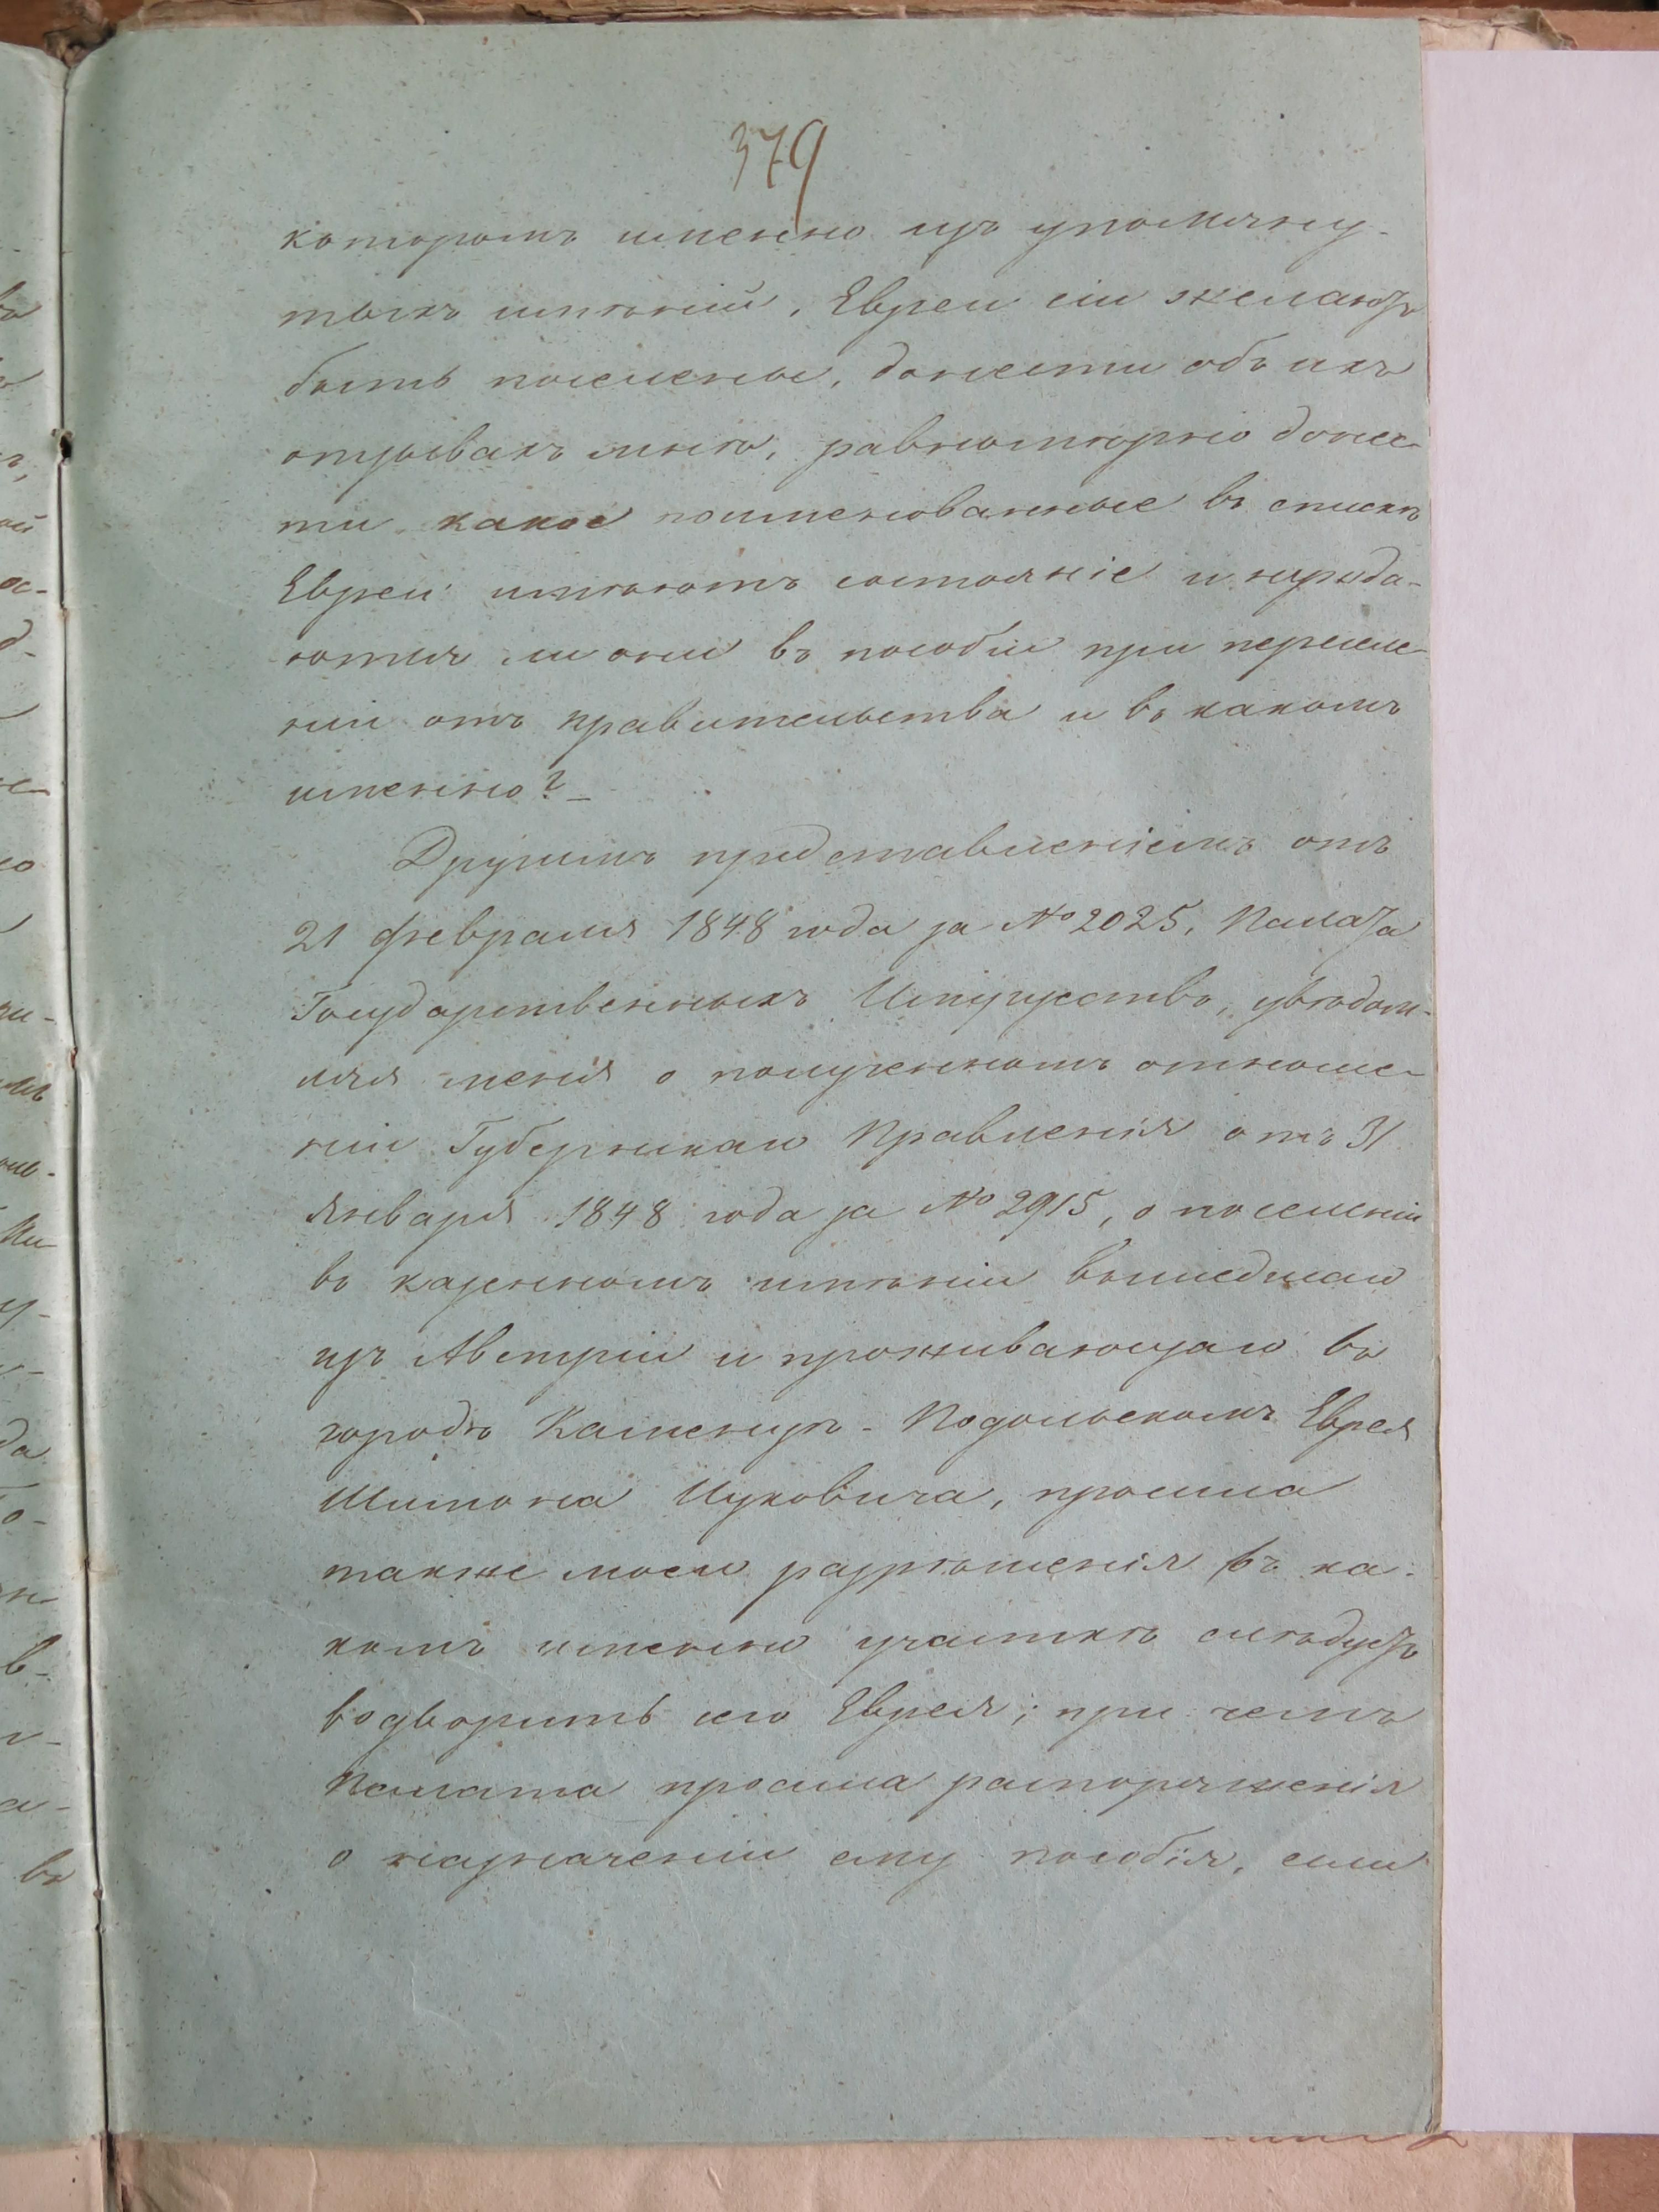 379
которомъ именно изъ упомяну-
тыхъ имѣній, Евреи сіи желаютъ
быть поселены, донести объ ихъ
отзывахъ мнѣ, равномѣрно донес-
ти какое поименованные въ спискѣ
Евреи имѣютъ состояніе и нужда-
ются ли они въ пособіи при переселе-
ніи отъ правительства и въ какомъ
именно? –
Другимъ представленіемъ отъ
21 февраля 1848 года за № 2025, Палата
Государственныхъ Имуществъ, увѣдом-
ляя меня о полученномъ отноше-
ніи Губернскаго Правленія отъ 31
Января 1848 года за № 2915, о поселеніи
въ казенномъ имѣніи вышедшаго
изъ Австріи и проживающаго въ
городѣ Каменцѣ-Подольскомъ Еврея
Шимона Ицковича, просила
также моего разрѣшенія въ ка-
комъ именно участкѣ слѣдуетъ
водворить его Еврея; при чемъ
Палата просила распоряженія
о назначеніи ему пособія, если